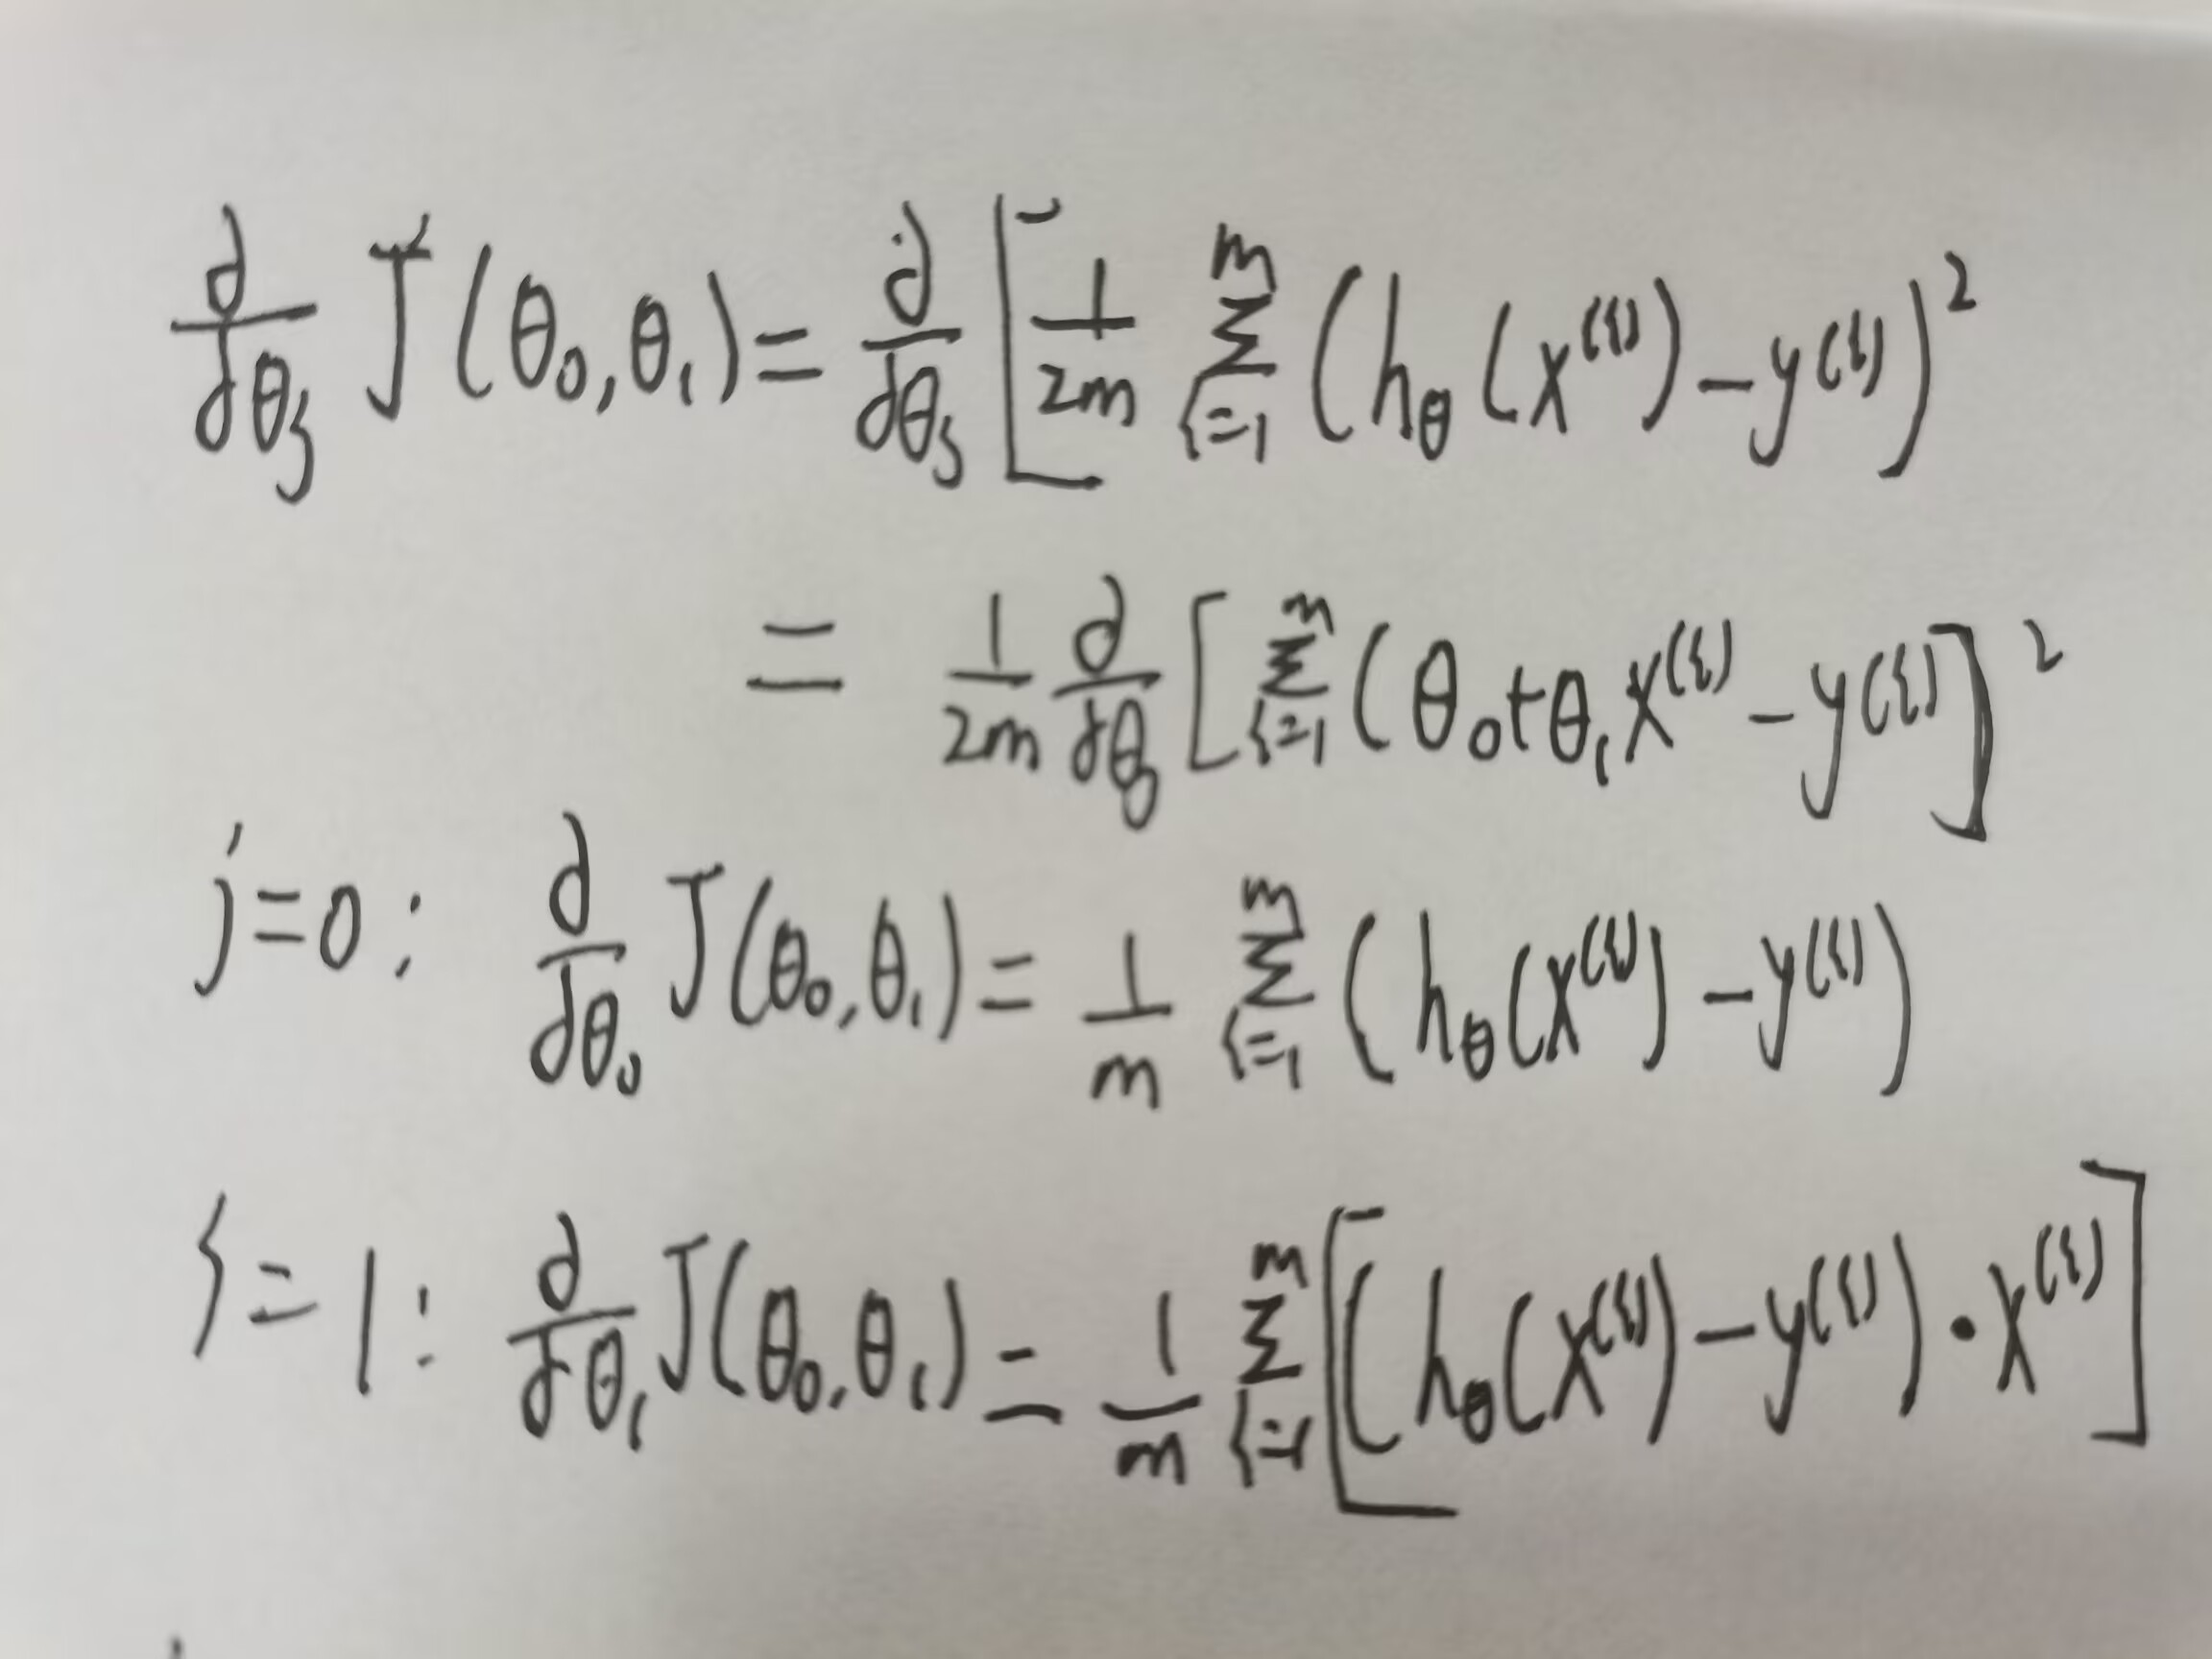 ∂/∂θj J(θ0,θ1) = ∂/∂θj [ 1/2m ∑_{i=1}^{m} (hθ(x^(i)) − y^(i))^2
= 1/2m ∂/∂θj [ ∑_{i=1}^{m} (θ0+θ1x^(i) − y^(i) ]^2
j=0: ∂/∂θ0 J(θ0,θ1) = 1/m ∑_{i=1}^{m} (hθ(x^(i)) − y^(i))
j=1: ∂/∂θ1 J(θ0,θ1) = 1/m ∑_{i=1}^{m} [(hθ(x^(i)) − y^(i)) · x^(i)]